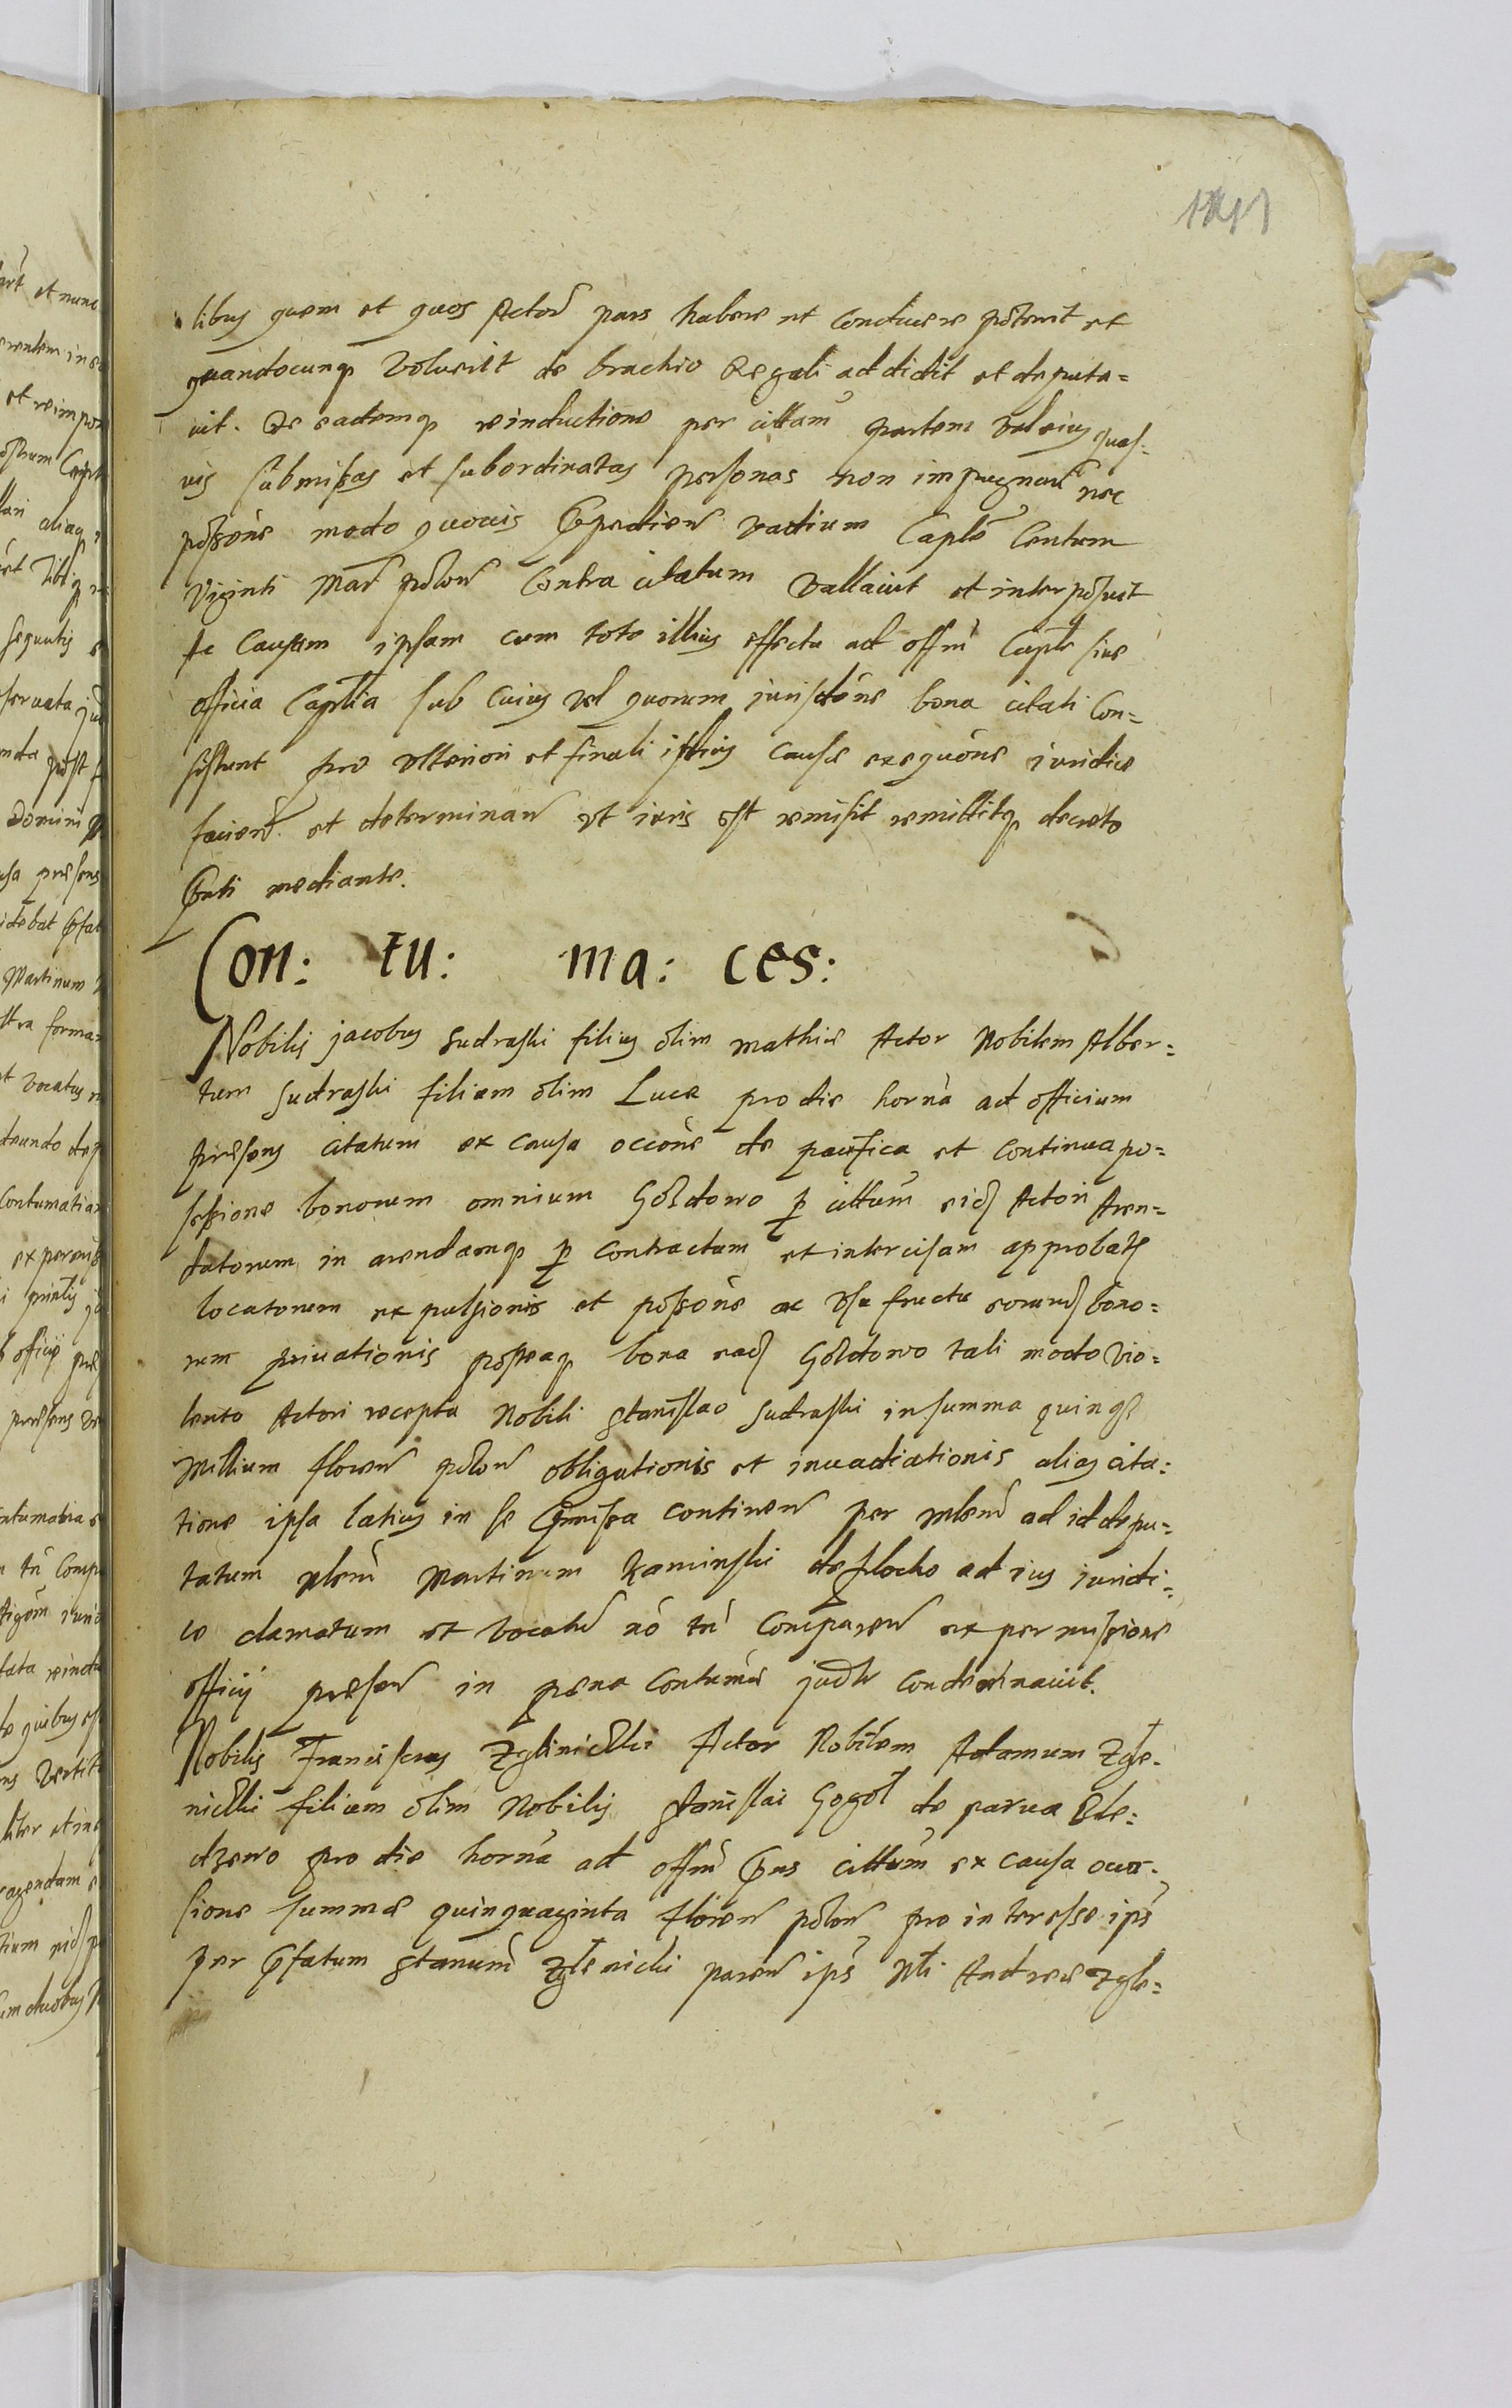 libus quem et quos Actor pars habere et conducere poterit et
quandocunq voluerit de brachio Regali addidit et deputa=
vit. De eademq reinductione per citatam partem vel eius quas=
vis submissas et subordinatas personas non impugnan nec
possone modo quovis Impedien vadium Caple Centum
viginti Mar polon Contra citatum vallavit et interposuit
Ac Causam ipsam cum toto illius effectu ad offm Caple sive
officia Captlia sub cuius vel quorum jurisdone bona citati Con=
sistunt pro ulteriori et finali istius Causae exequone iuridice
facien et determinan ut iuris est remisit remittitq decreto
Pnti mediante.
Con: tu: ma: ces:
Nobilis Jacobus Sudraski filius olim Mathie Actor Nobilem Alber=
tum Sudraski filium olim Luce pro die horna ad officium
praesens citatum ex causa occone de pacifica et continua po=
ssessione bonorum omnium Goldowo p cittum eid Actori Aren=
datorum in arendamq p contractum et intercisam approbat
locatorum expulsionis et possone ac usu fructu eorund bono=
rum privationis posteaq bona ead Goldowo tali modo vio=
lento Actori recepta Nobili Stanislao Sudraski in summa quinq
Millium floren polon obligationis et invadiationis alias cita=
tione ipsa latius in se Pmissa continen per mlem ad id depu=
tatum mlem Martinum Kaminski de Plocko ad ius iuridi=
ce clamatum et vocatu no tn comparen ex permissione
officij praesen in pena contumae judtr condemnavit.
Nobilis Franciscus Zglinicki Actor Nobilem Adamum Zgle=
nicki filium olim Nobilis Stanislai Gogol de parva
dzewo pro die horna ad offm Pns cittum ex causa occa=
sione summae quinquaginta floren polon pro interesse ips
per Pfatum Stanum Zglenicki paren ips Nli Andreae Zgle=